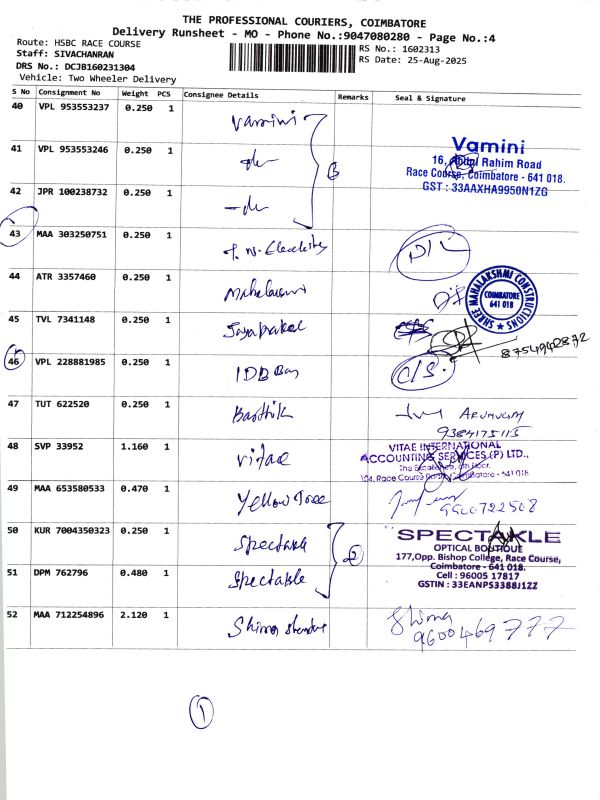 THE PROFESSIONAL COURIERS, COIMBATORE
Delivery Runsheet - MO - Phone No.:9047080280 - Page No.:4
Route: HSBC RACE COURSE
Staff: SIVACHANRAN
DRS No.: DCJB160231304
Vehicle: Two Wheeler Delivery
RS No.: 1602313
RS Date: 25-Aug-2025
S No Consignment No Weight PCS Consignee Details Remarks Seal & Signature
40 VPL 953553237 0.250 1 Vamini
41 VPL 953553246 0.250 1 -do-
42 JPR 100238732 0.250 1 -do-
3
Vamini
16, Abdul Rahim Road
Race Course, Coimbatore - 641 018.
GST : 33AAXHA9950N1ZG
43 MAA 303250751 0.250 1 D/L
44 ATR 3357460 0.250 1 D/L
SHREE MAHALAKSHMI CONSTRUCTIONS
COIMBATORE
641 018
45 TVL 7341148 0.250 1 Jayaprakash
8754942872
46 VPL 228881985 0.250 1 IDB Bay C/S.
47 TUT 622520 0.250 1 Barthik ARUMUGAM
9384175115
48 SVP 33952 1.160 1 vitae
VITAE INTERNATIONAL
ACCOUNTING SERVICES (P) LTD.,
The Excellence, 4th Floor,
104, Race Course Road, Coimbatore - 641 018.
49 MAA 653580533 0.470 1 Yellow Tree
50 KUR 7004350323 0.250 1 Spectakle
51 DPM 762796 0.480 1 Spectakle
2
SPECTAKLE
OPTICAL BOUTIQUE
177,Opp. Bishop College, Race Course,
Coimbatore - 641 018.
Cell : 96005 17817
GSTIN : 33EANPS3388J1ZZ
52 MAA 712254896 2.120 1 Shima
Shima
9600469777
1